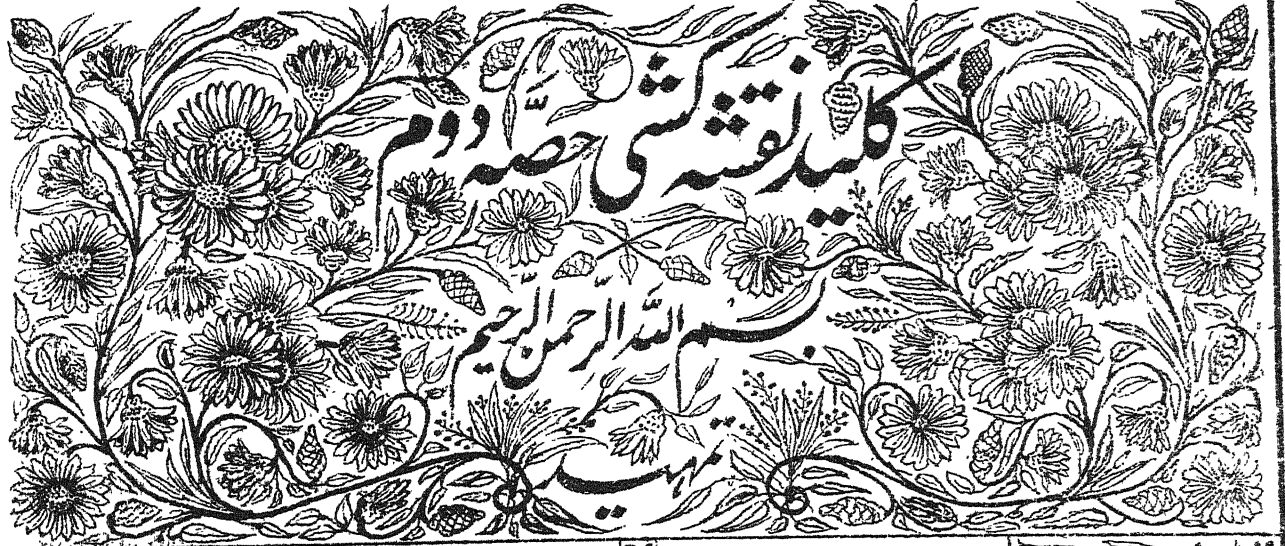 کلید نقشہ کشی حصّہ دوم
بسم اللہ الرحمن الرحیم
تمہید